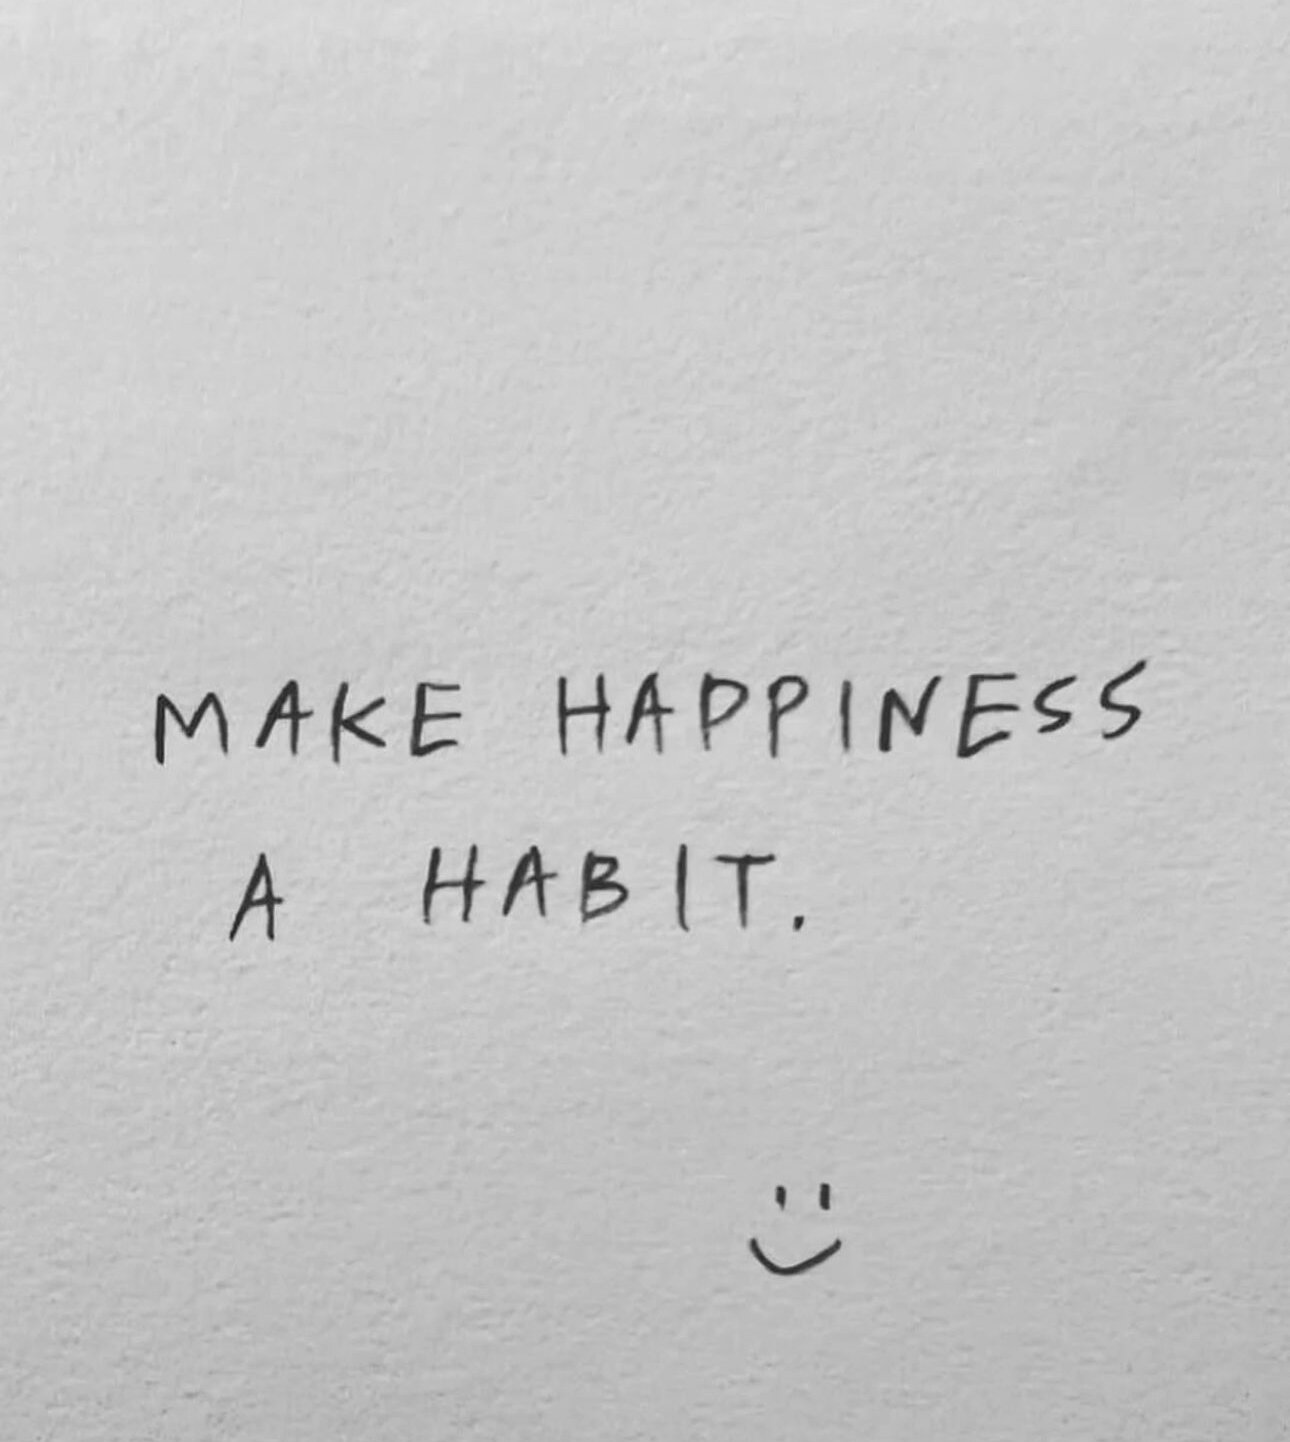 MAKE HAPPINESS
A HABIT.